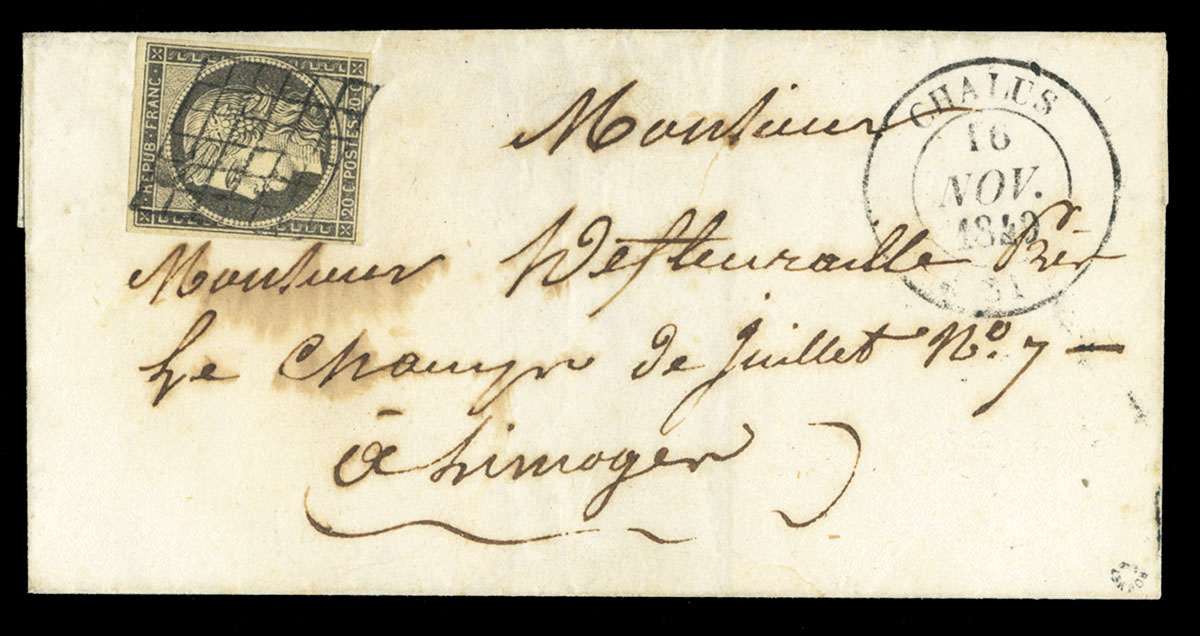 REPUB. FRANC.
20.C. POSTES. 20.C.
CHALUS
16
NOV.
1849
Monsieur
Monsieur Defleuraille Près
Le Champ de Juillet No. 7 —
à Limoges